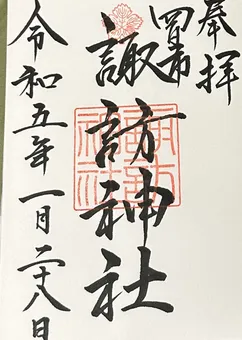 奉拝
四日市
諏訪神社
令和五年一月二十八日
諏訪神社